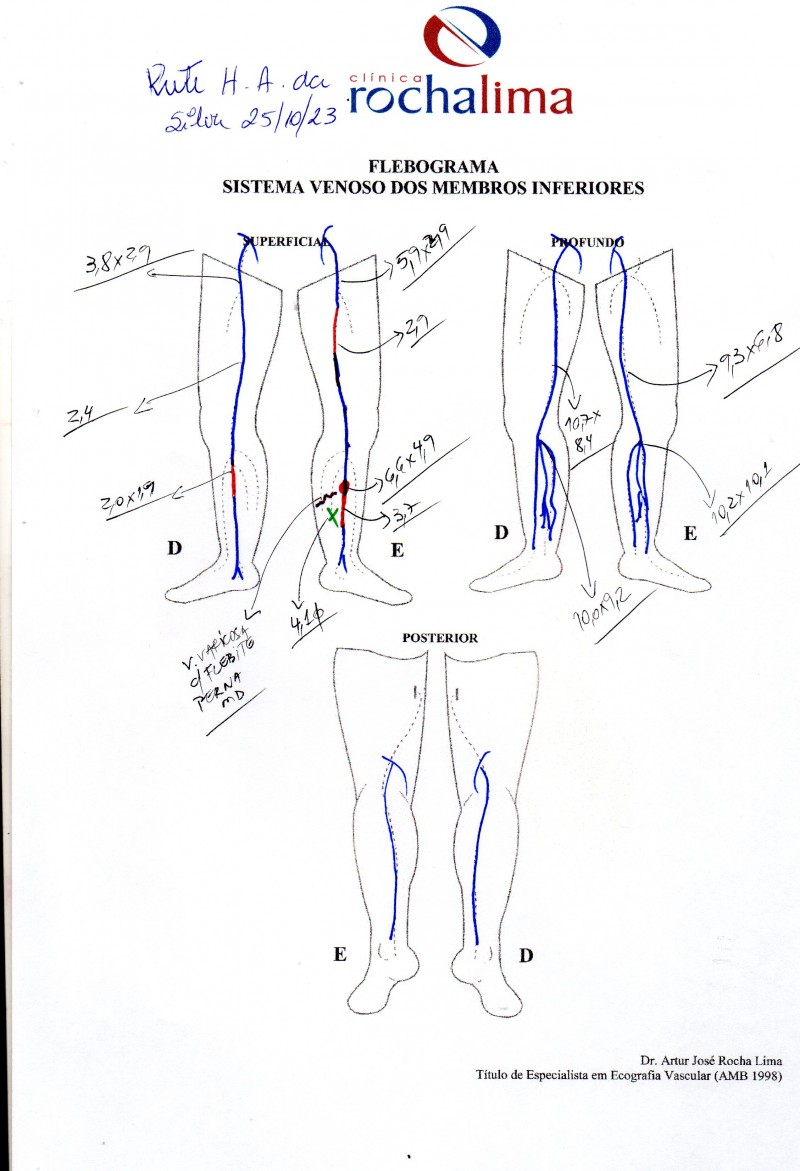 Rute H. A. da
Silva 25/10/23
clínica
rochalima
FLEBOGRAMA
SISTEMA VENOSO DOS MEMBROS INFERIORES
SUPERFICIAL
PROFUNDO
3,8x2,9
2,4
2,0x1,9
2,9
6,6x4,9
3,7
4,1φ
V. VARICOSA
c/ FLEBITE
PERNA
MD
10,7x
8,4
9,3x6,8
10,2x10,1
10,0x9,2
D
E
D
E
POSTERIOR
E
D
Dr. Artur José Rocha Lima
Título de Especialista em Ecografia Vascular (AMB 1998)